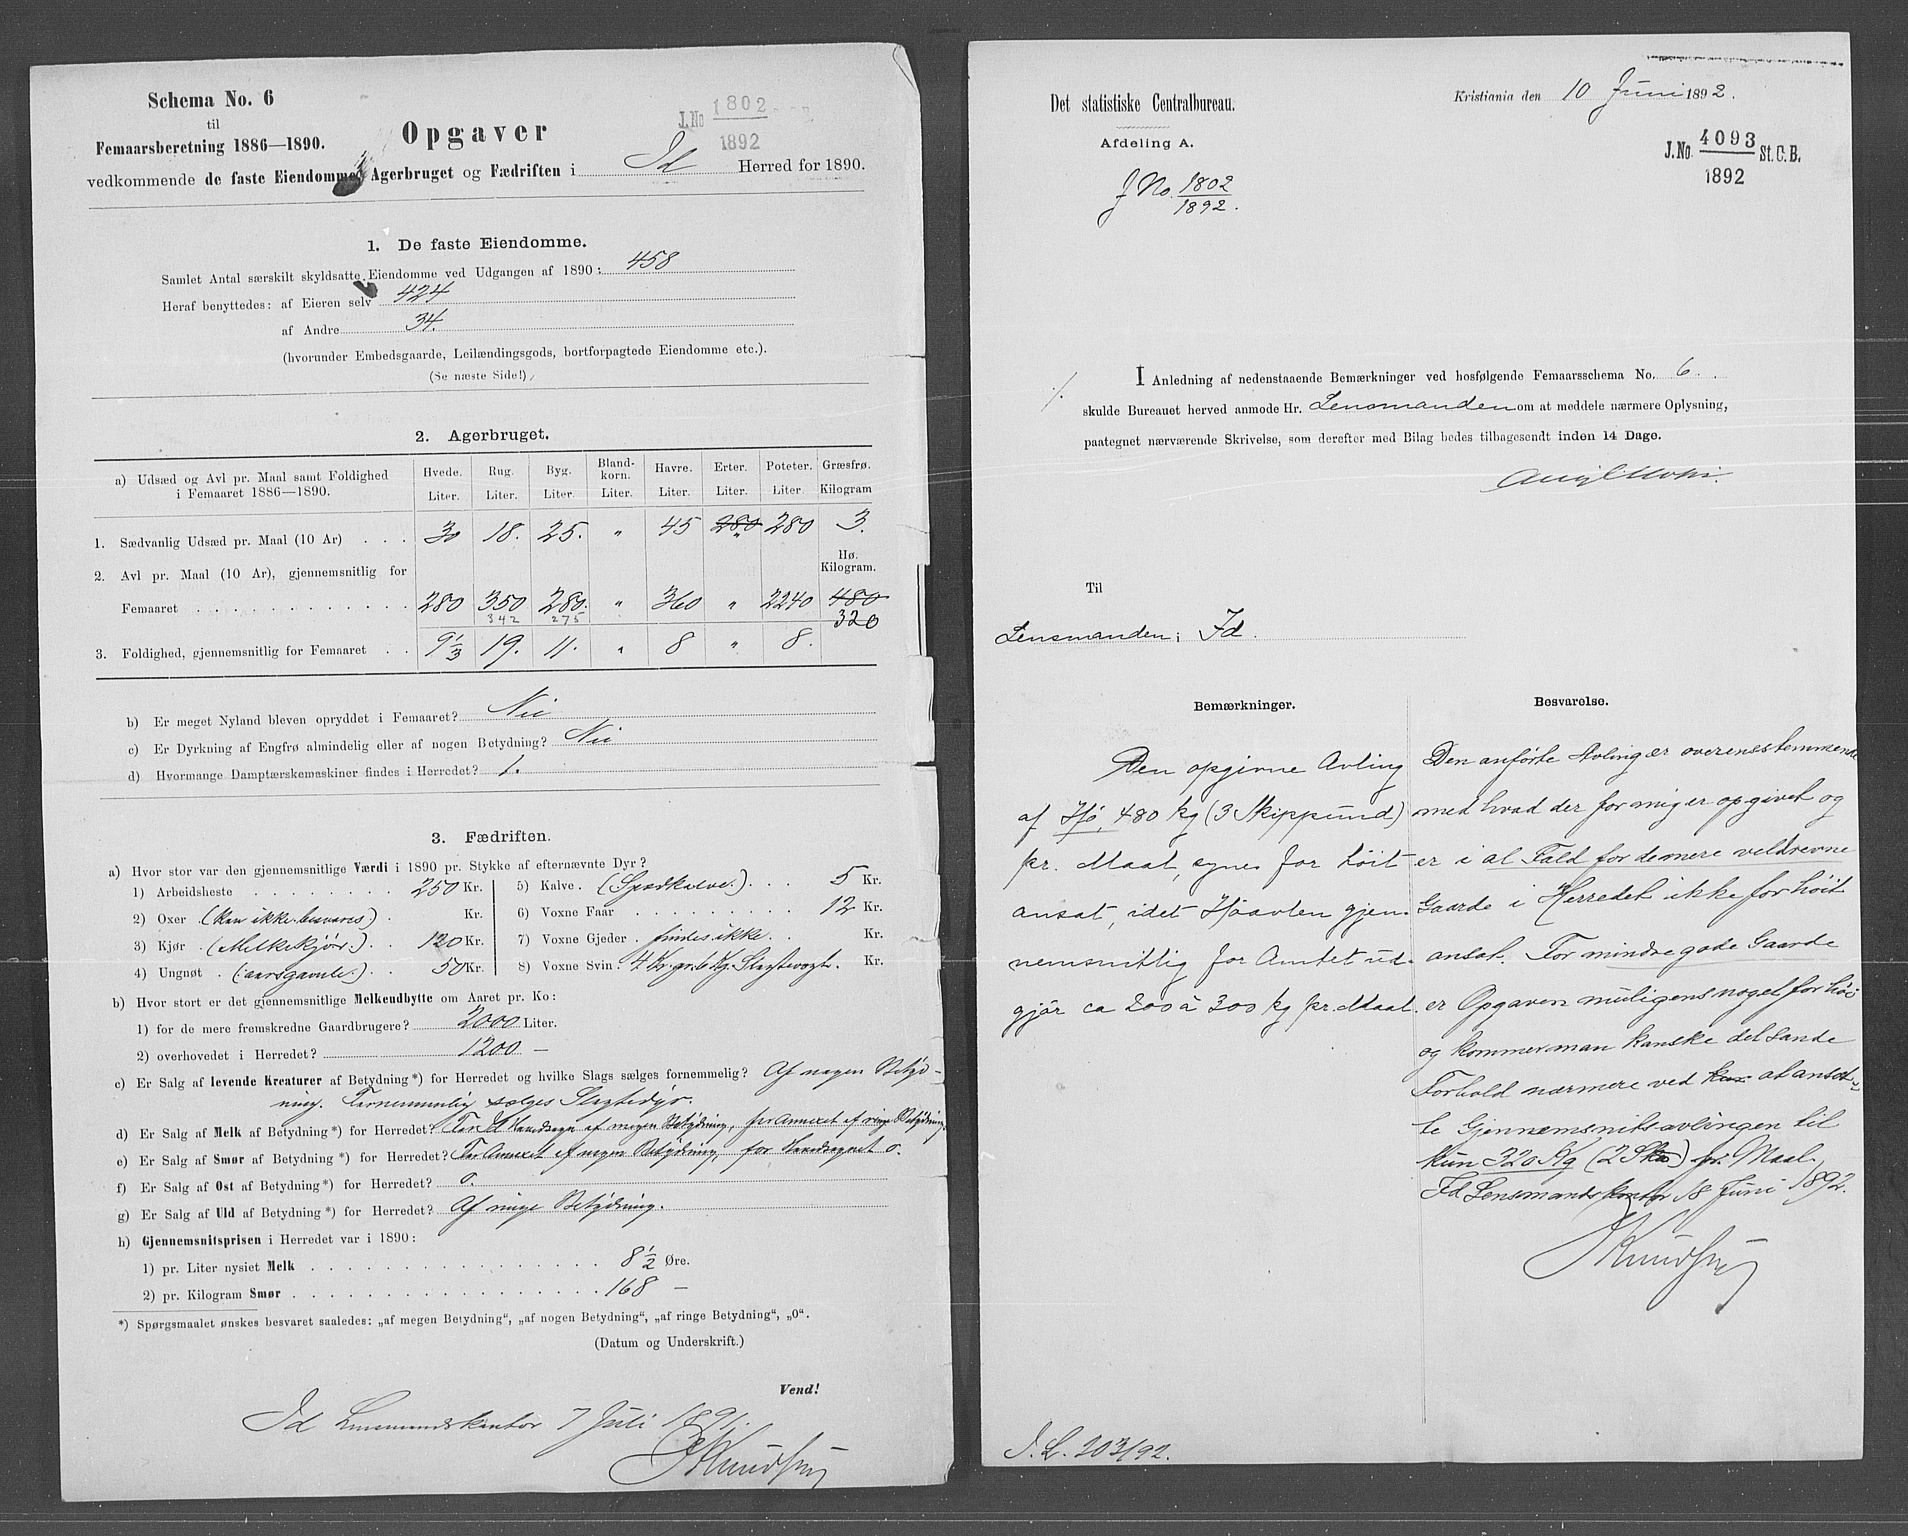 Schema No. 6
til
Femaarsberetning 1886—1890.
Opgaver
J.No 1802 St.C.B.
1892
vedkommende de faste Eiendomme, Agerbruget og Fædriften i Id Herred for 1890.
1. De faste Eiendomme.
Samlet Antal særskilt skyldsatte Eiendomme ved Udgangen af 1890: 458
Heraf benyttedes: af Eieren selv 424
af Andre 34.
(hvorunder Embedsgaarde, Leilændingsgods, bortforpagtede Eiendomme etc.).
(Se næste Side!)
2. Agerbruget.
a) Udsæd og Avl pr. Maal samt Foldighed i Femaaret 1886—1890.
Hvede. Rug. Byg. Bland-korn. Havre. Erter. Poteter. Græsfrø.
Liter. Liter. Liter. Liter. Liter. Liter. Liter. Kilogram
1. Sædvanlig Udsæd pr. Maal (10 Ar) . . . 30 18. 25. " 45 280 " 280 3.
Hø.
Kilogram.
2. Avl pr. Maal (10 Ar), gjennemsnitlig for
Femaaret . . . . . . . . . . . . 280 350 280. " 360 " 2240 480
342 275 320
3. Foldighed, gjennemsnitlig for Femaaret . . 9 1/3 19. 11. " 8 " 8.
b) Er meget Nyland bleven opryddet i Femaaret? Nei
c) Er Dyrkning af Engfrø almindelig eller af nogen Betydning? Nei
d) Hvormange Damptærskemaskiner findes i Herredet? 1.
3. Fædriften.
a) Hvor stor var den gjennemsnitlige Værdi i 1890 pr. Stykke af efternævnte Dyr?
1) Arbeidsheste . . . . . . . . 250 Kr.
2) Oxer (kan ikke besvares) . Kr.
3) Kjør . (Melkekjør.) . . 120 Kr.
4) Ungnøt . (aarsgamle.) . 50 Kr.
5) Kalve. (Spædkalve.) . . . 5 Kr.
6) Voxne Faar . . . . . . . . . 12 Kr.
7) Voxne Gjeder . findes ikke. . Kr.
8) Voxne Svin. 4 Kr. pr. 6 Kg. Slagtevægt. Kr.
b) Hvor stort er det gjennemsnitlige Melkeudbytte om Aaret pr. Ko:
1) for de mere fremskredne Gaardbrugere? 2000 Liter.
2) overhovedet i Herredet? 1200 —
c) Er Salg af levende Kreaturer af Betydning*) for Herredet og hvilke Slags sælges fornemmelig? Af nogen Betyd-
ning. Fornemmelig sælges Slagtedyr.
d) Er Salg af Melk af Betydning*) for Herredet? For Id Hovedsogn af megen Betydning, for Annexet af ringe Betydning.
e) Er Salg af Smør af Betydning*) for Herredet? For Annexet af megen Betydning, for Hovedsognet 0.
f) Er Salg af Ost af Betydning*) for Herredet? 0.
g) Er Salg af Uld af Betydning*) for Herredet? Af ringe Betydning.
h) Gjennemsnitsprisen i Herredet var i 1890:
1) pr. Liter nysiet Melk . . . . . . . . . . . . . . . . . 8 1/2 Øre.
2) pr. Kilogram Smør . . . . . . . . . . . . . . . . . . 168 —
*) Spørgsmaalet ønskes besvaret saaledes: „af megen Betydning“, „af nogen Betydning“, „af ringe Betydning“, „0“.
(Datum og Underskrift.)
Vend!
Id Lensmandskontor 7 Juli 1891.
Knudsen
Det statistiske Centralbureau.
Afdeling A.
J No. 1802
1892.
Kristiania den 10 Juni 1892.
J. No. 4093 St. C. B.
1892
I Anledning af nedenstaaende Bemærkninger ved hosfølgende Femaarsschema No. 6.
skulde Bureauet herved anmode Hr. Lensmanden om at meddele nærmere Oplysning,
paategnet nærværende Skrivelse, som derefter med Bilag bedes tilbagesendt inden 14 Dage.
Til
Lensmanden i Id.
Bemærkninger.
Den opgivne Avling
af Hø, 480 kg (3 Skippund)
pr. Maal, synes for høit
ansat, idet Høavlen gjen-
nemsnitlig for Amtet ud-
gjør ca 200 à 300 kg pr. Maal.
Besvarelse.
Den anførte Avling er overensstemmende
med hvad der for mig er opgivet og
er i al Fald for de mere veldrevne
Gaarde i Herredet ikke for høit
ansat. For mindre gode Gaarde
er Opgaven muligens noget for høi
og kommer man kanske det sande
Forhold nærmere ved at ansæt-
te Gjennemsnitsavlingen til
kun 320 Kg (2 Sk) pr. Maal.
Id Lensmandskontor 18 Juni 1892.
Knudsen
J. L. 203/92.